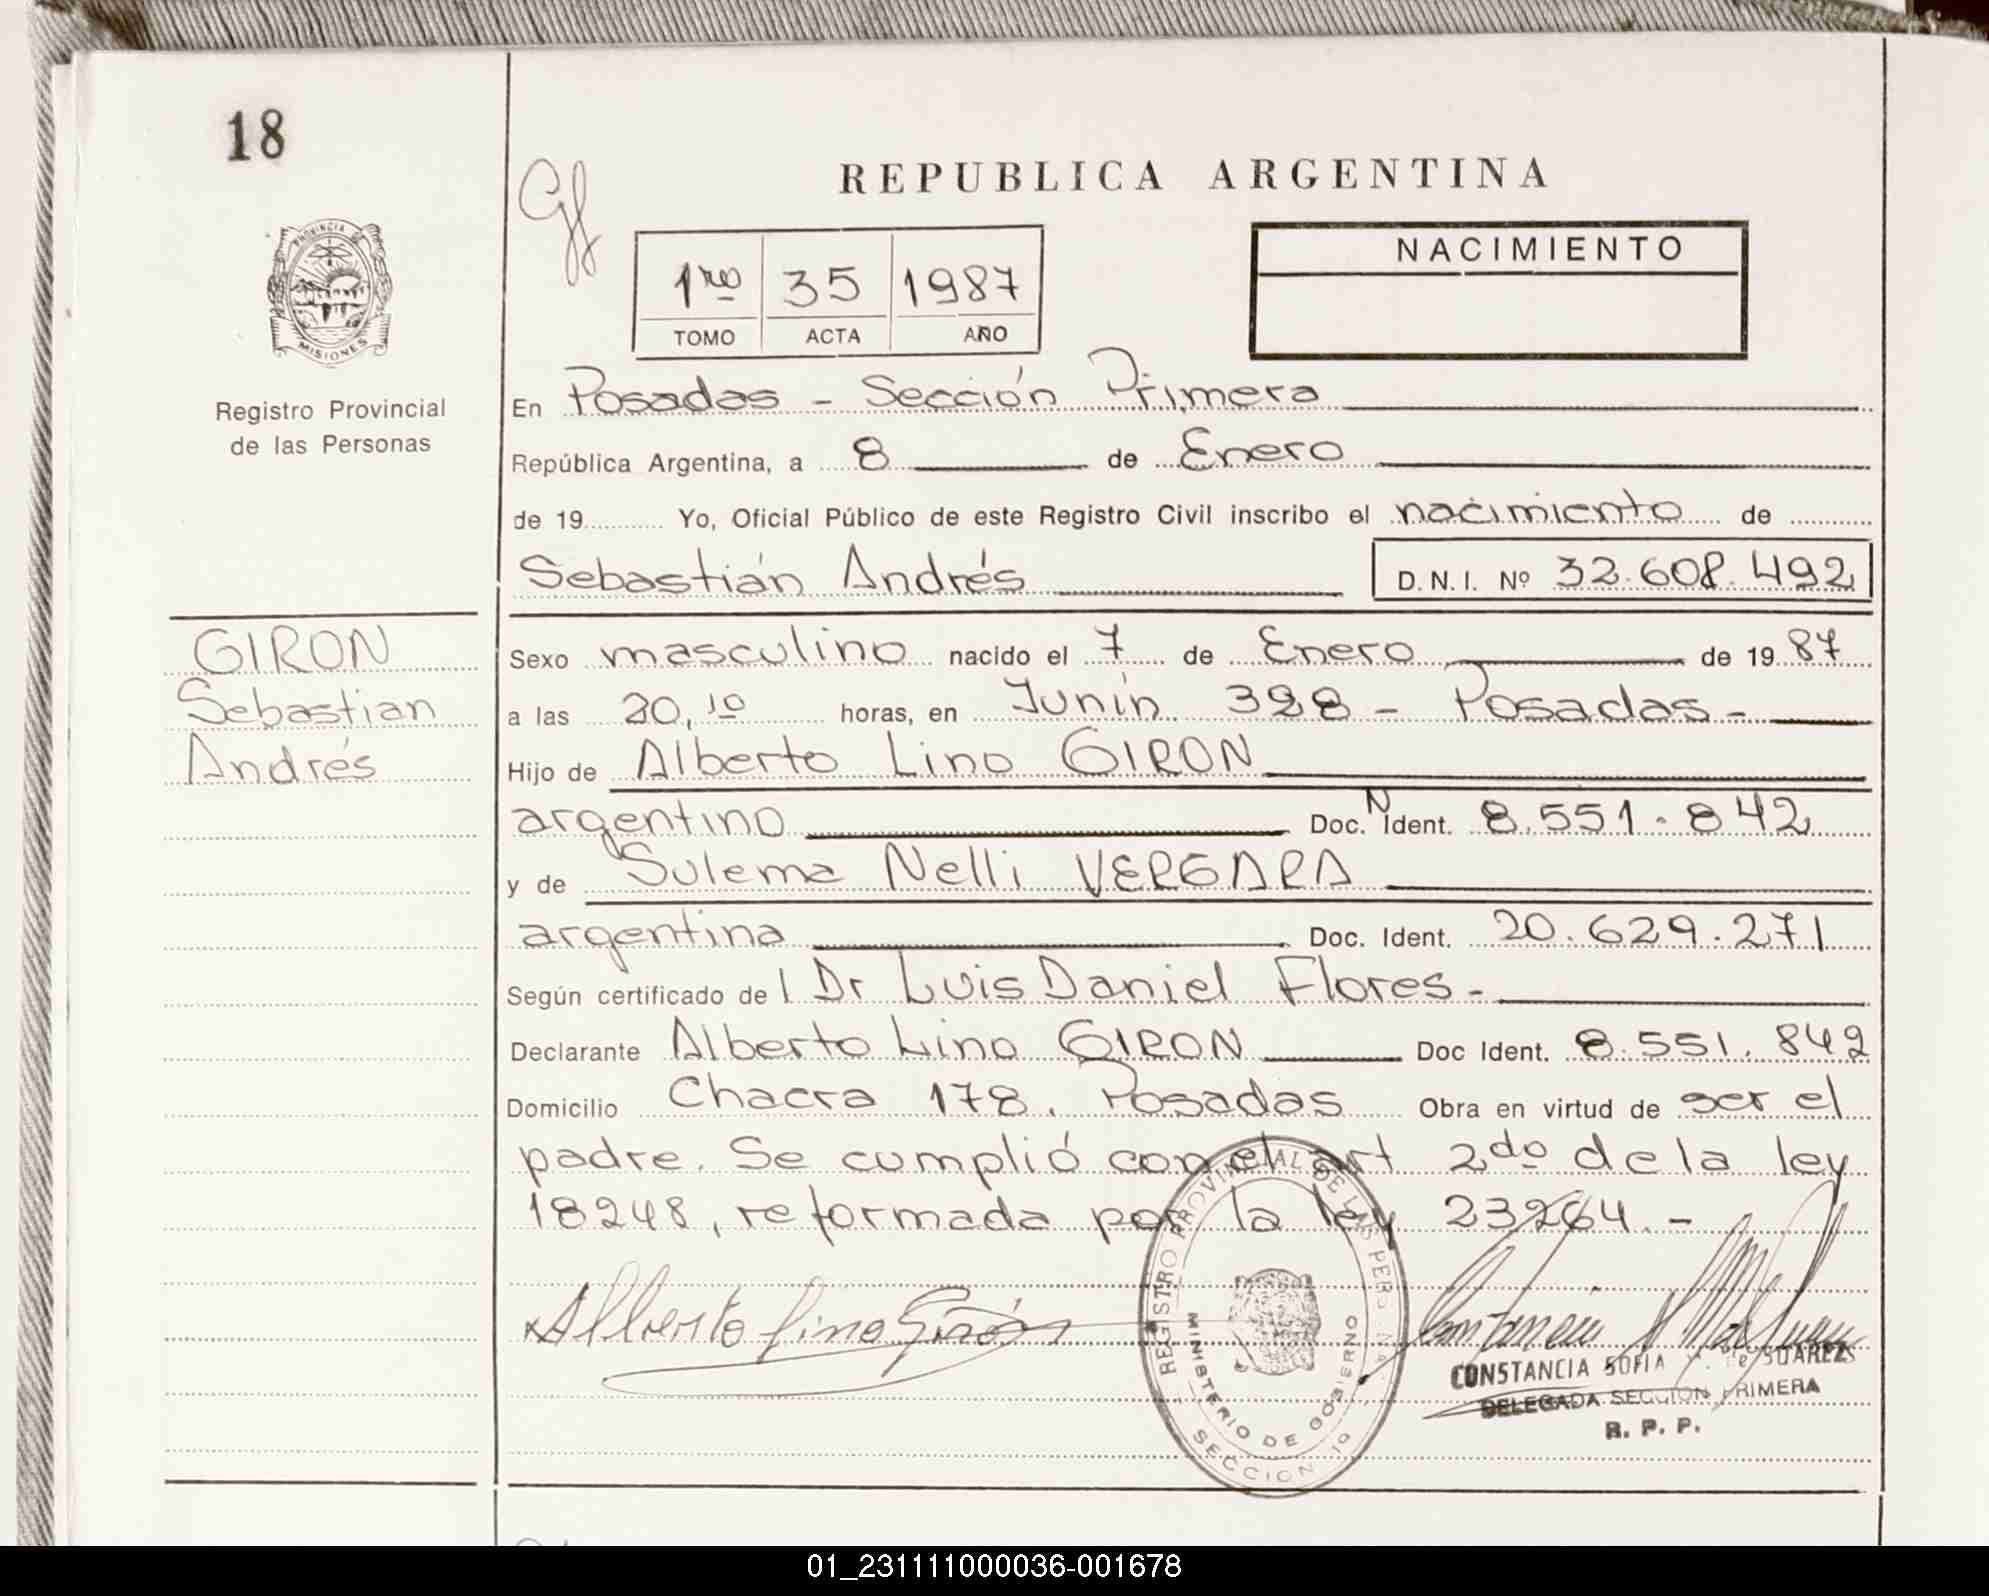 18
REPUBLICA ARGENTINA
NACIMIENTO
1ro 35 1987
TOMO ACTA AÑO
PROVINCIA DE
MISIONES
Registro Provincial
de las Personas
En Posadas - Sección Primera
República Argentina, a 8 de Enero
de 19 Yo, Oficial Público de este Registro Civil inscribo el nacimiento de
Sebastián Andrés D.N.I. Nº 32.608.492
GIRON
Sebastian
Andrés
Sexo masculino nacido el 7 de Enero de 1987
a las 20,10 horas, en Junín 328 - Posadas -
Hijo de Alberto Lino GIRON
argentino Doc. N Ident. 8.551.842
y de Sulema Nelli VERGARA
argentina Doc. Ident. 20.629.271
Según certificado del Dr Luis Daniel Flores -
Declarante Alberto Lino GIRON Doc Ident. 8.551.842
Domicilio Chacra 178. Posadas Obra en virtud de ser el
padre. Se cumplió con el art 2do de la ley
18248, reformada por la ley 23264. -
Alberto Lino Girón
REGISTRO PROVINCIAL DE LAS PERS
MINISTERIO DE GOBIERNO
SECCION 1a
CONSTANCIA SOFIA de SUAREZ
DELEGADA SECCION PRIMERA
R. P. P.
01_231111000036-001678